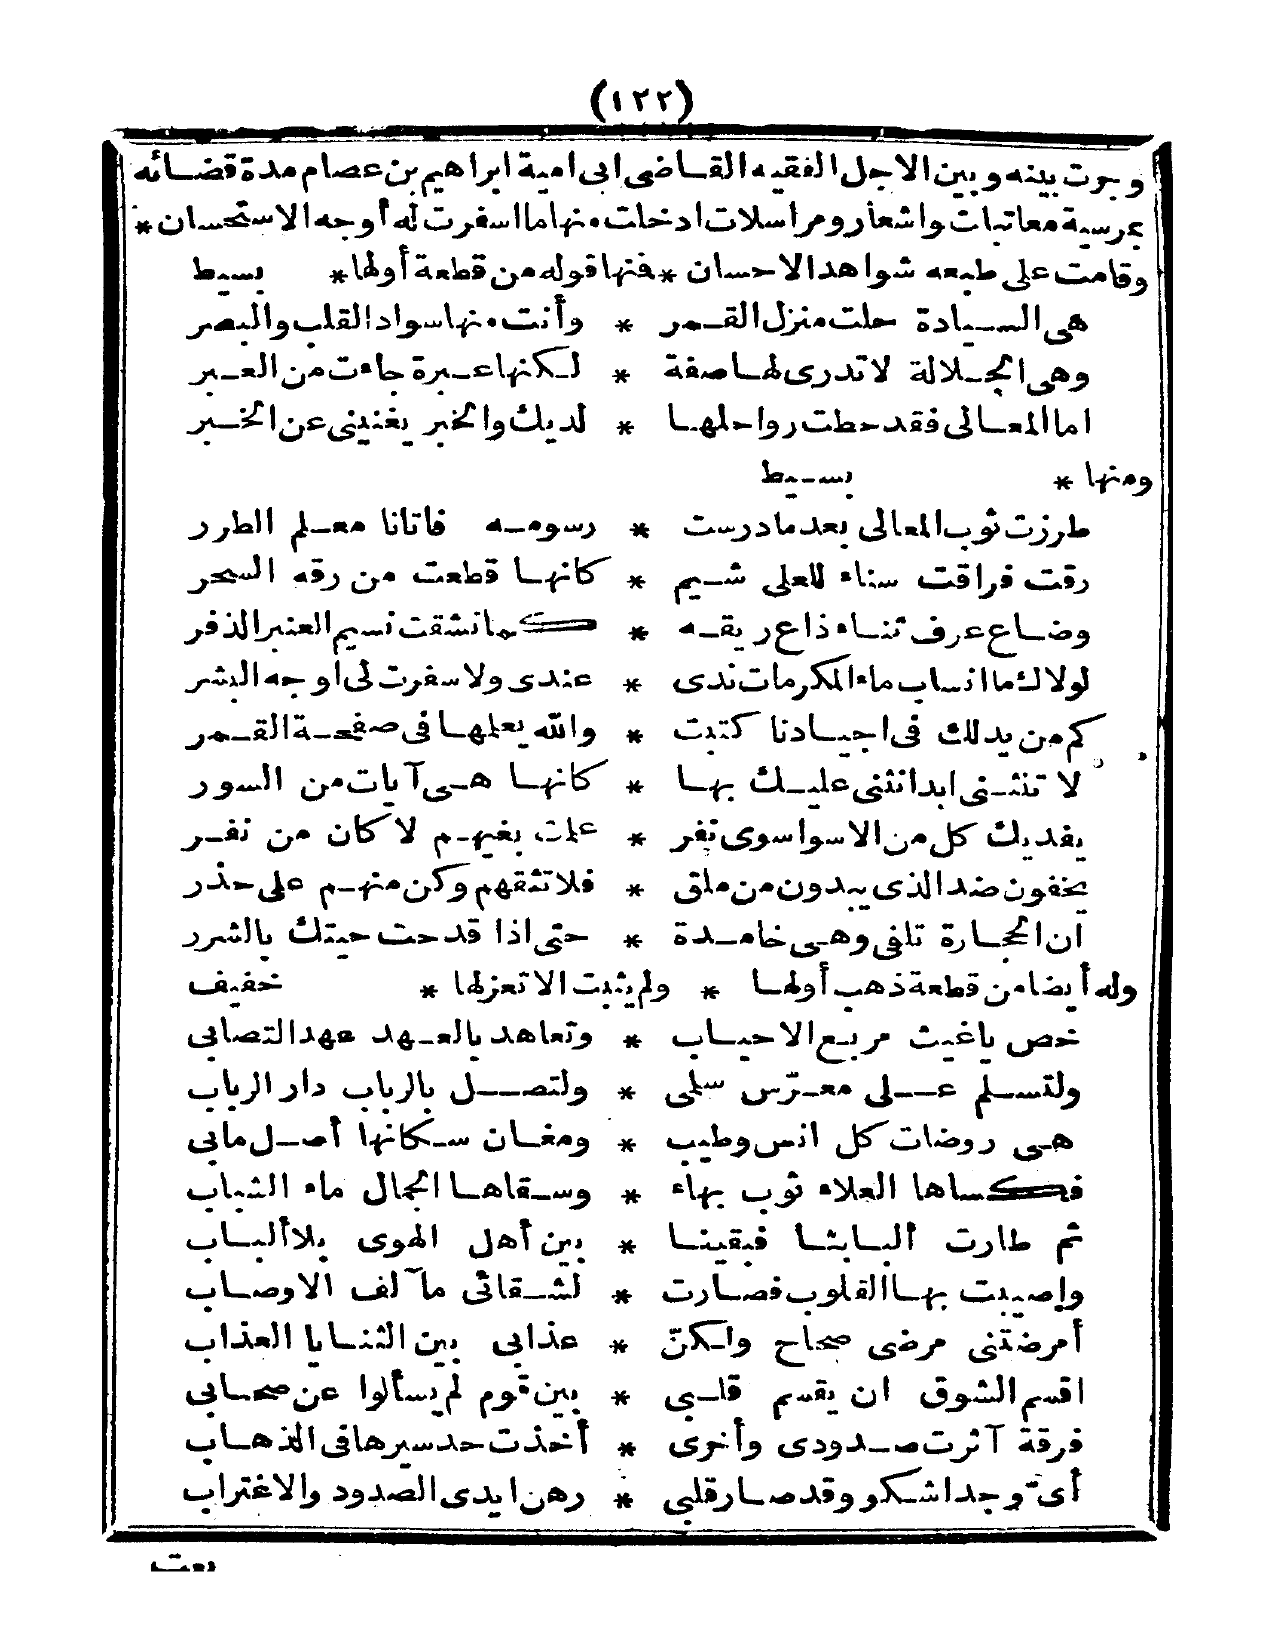 (١٢٢)
وجرت بينه وبين الاجل الفقيه القاضى ابى امية ابراهيم بن عصام مدة قضائه
بمرسية معاتبات واشعار ومراسلات ادخلت منها ما اسفرت له أوجه الاستحسان *
وقامت على طبعه شواهد الاحسان * فمنها قوله من قطعة أولها * بسيط
هى السيادة حلت منزل القمر * وأنت منها سواد القلب والبصر
وهى الجلالة لا تدرى لها صفة * لكنها عبرة جاءت من العبر
اما المعالى فقد حطت رواحلها * لديك والخبر يغنينى عن الخبر
ومنها * بسيط
طرزت ثوب المعالى بعد ما درست * رسومه فاتانا معلم الطرر
رقت فراقت سناء للعلى شيم * كانها قطعت من رقه السحر
وضاع عرف ثناء ذاع ريقه * كما نشقت نسيم العنبر الذفر
لولاك ما انساب ماء المكرمات ندى * عندى ولا سفرت لى اوجه البشر
كم من يد لك فى اجيادنا كتبت * والله يعلمها فى صفحة القمر
لا تنثنى ابدا نثنى عليك بها * كانها هى آيات من السور
يفديك كل من الاسوا سوى نفر * علت بغيهم لا كان من نفر
يخفون ضد الذى يبدون من ملق * فلا تثقهم وكن منهم على حذر
ان الحجارة تلفى وهى خامدة * حتى اذا قدحت حيتك بالشرر
وله أيضا من قطعة ذهب أولها * ولم يثبت الا تعزلها * خفيف
خص ياغيث مربع الاحباب * وتعاهد بالعهد عهد التصابى
ولتسلم على معرّس سلمى * ولتصل بالرباب دار الرباب
هى روضات كل انس وطيب * ومغان سكانها أصل مابى
فكساها العلاء ثوب بهاء * وسقاها الجمال ماء الشباب
ثم طارت ألبابنا فبقينا * بين أهل الهوى بلا ألباب
واصيبت بها القلوب فصارت * لشقائى مآلف الاوصاب
أمرضتنى مرضى صحاح ولكنّ * عذابى بين الثنايا العذاب
اقسم الشوق ان يقسم قلبى * بين قوم لم يسألوا عن صحابى
فرقة آثرت صدودى وأخرى * أخذت حد سيرها فى الذهاب
أىّ وجد اشكو وقد صار قلبى * رهن ايدى الصدود والاغتراب